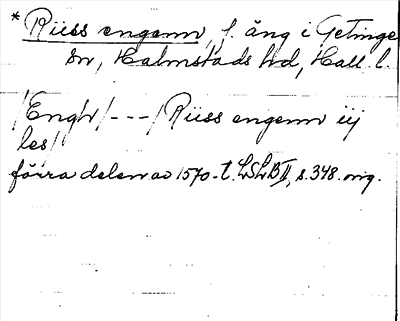 * Riiss engenn, f. äng i Getinge
sn, Halmstads hd, Hall. l.
/Engh/ - - - / Riiss engenn iij
les/
förra delen av 1570-t. LSLB II, s. 348. orig.